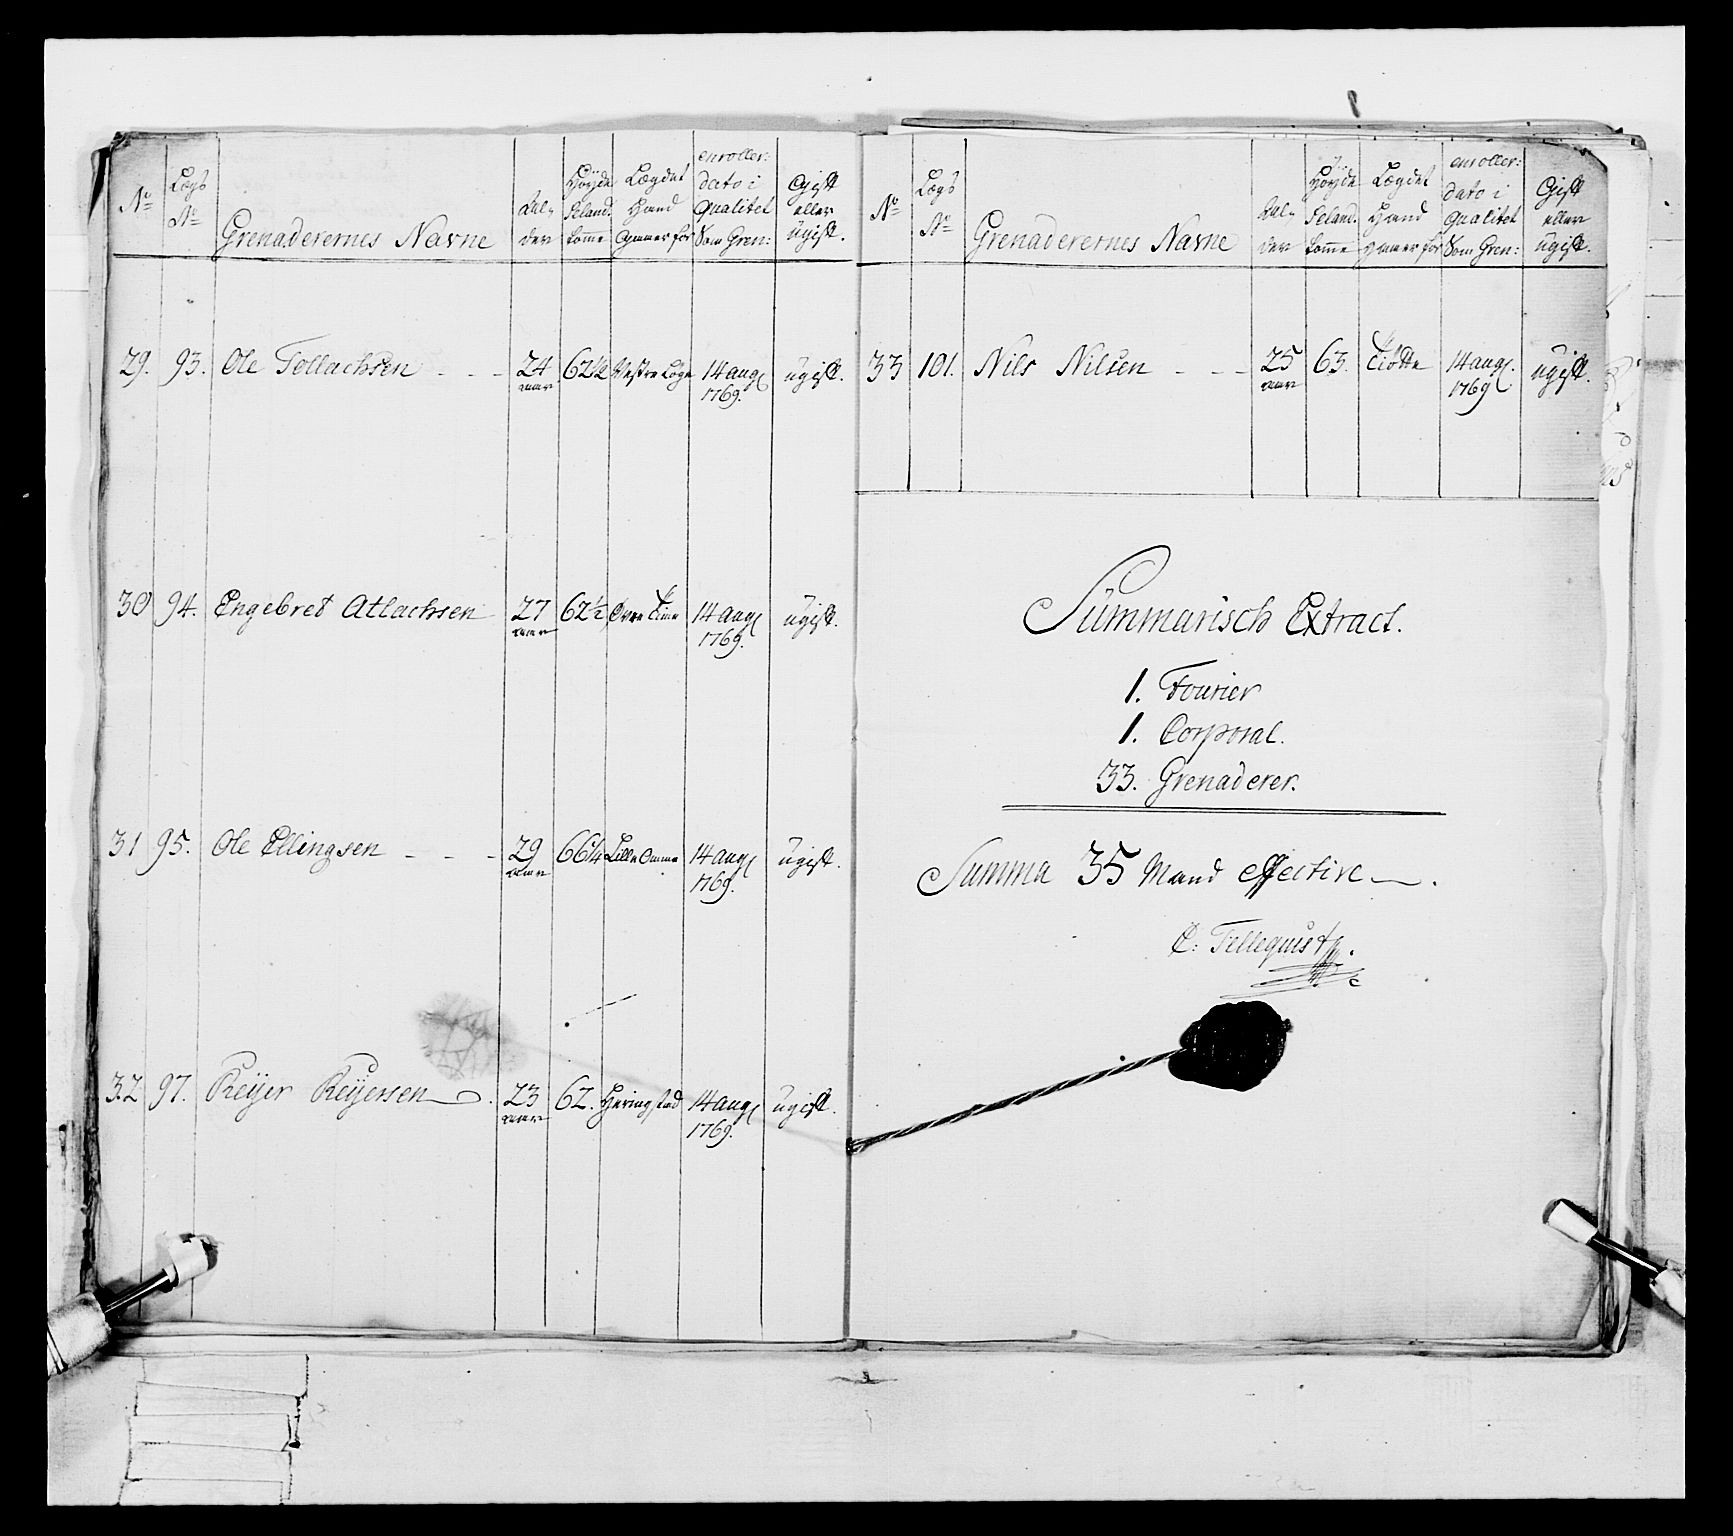 N<sup>o</sup> Lægs N<sup>o</sup> Grenaderernes Navne Alder Høyde Seland. tomme Lægdet Hand rymmer for enroller: dato i qualitet Som Gren: Gift eller ugift.
29. 93. Ole Tollachsen - - - 24 aar 62 1/2 Vestre Løge 14 aug 1769. ugift.
30 94. Engebret Atlachsen 27 aar 62 1/2 Øvre Time 14 aug 1769. ugift.
31 95. Ole Ellingsen - - - 29 aar 66 1/4 Lille Omme 14 aug 1769. ugift.
32 97. Reÿer Reÿersen 23 aar 62. Heringstad 14 aug 1769. ugift.
N<sup>o</sup> Lægs N<sup>o</sup> Grenaderernes Navne Alder Høyde Seland. tomme Lægdet Hand rymmer for enroller: dato i qualitet Som Gren: Gift eller ugift.
33 101. Nils Nilsen - - - 25 aar 63. Tiøtte 14 aug. 1769 ugift.
Summarisch Extract.
1. Fourier
1. Corporal.
33. Grenaderer.
Summa 35 Mand effective.
C: Tellequist